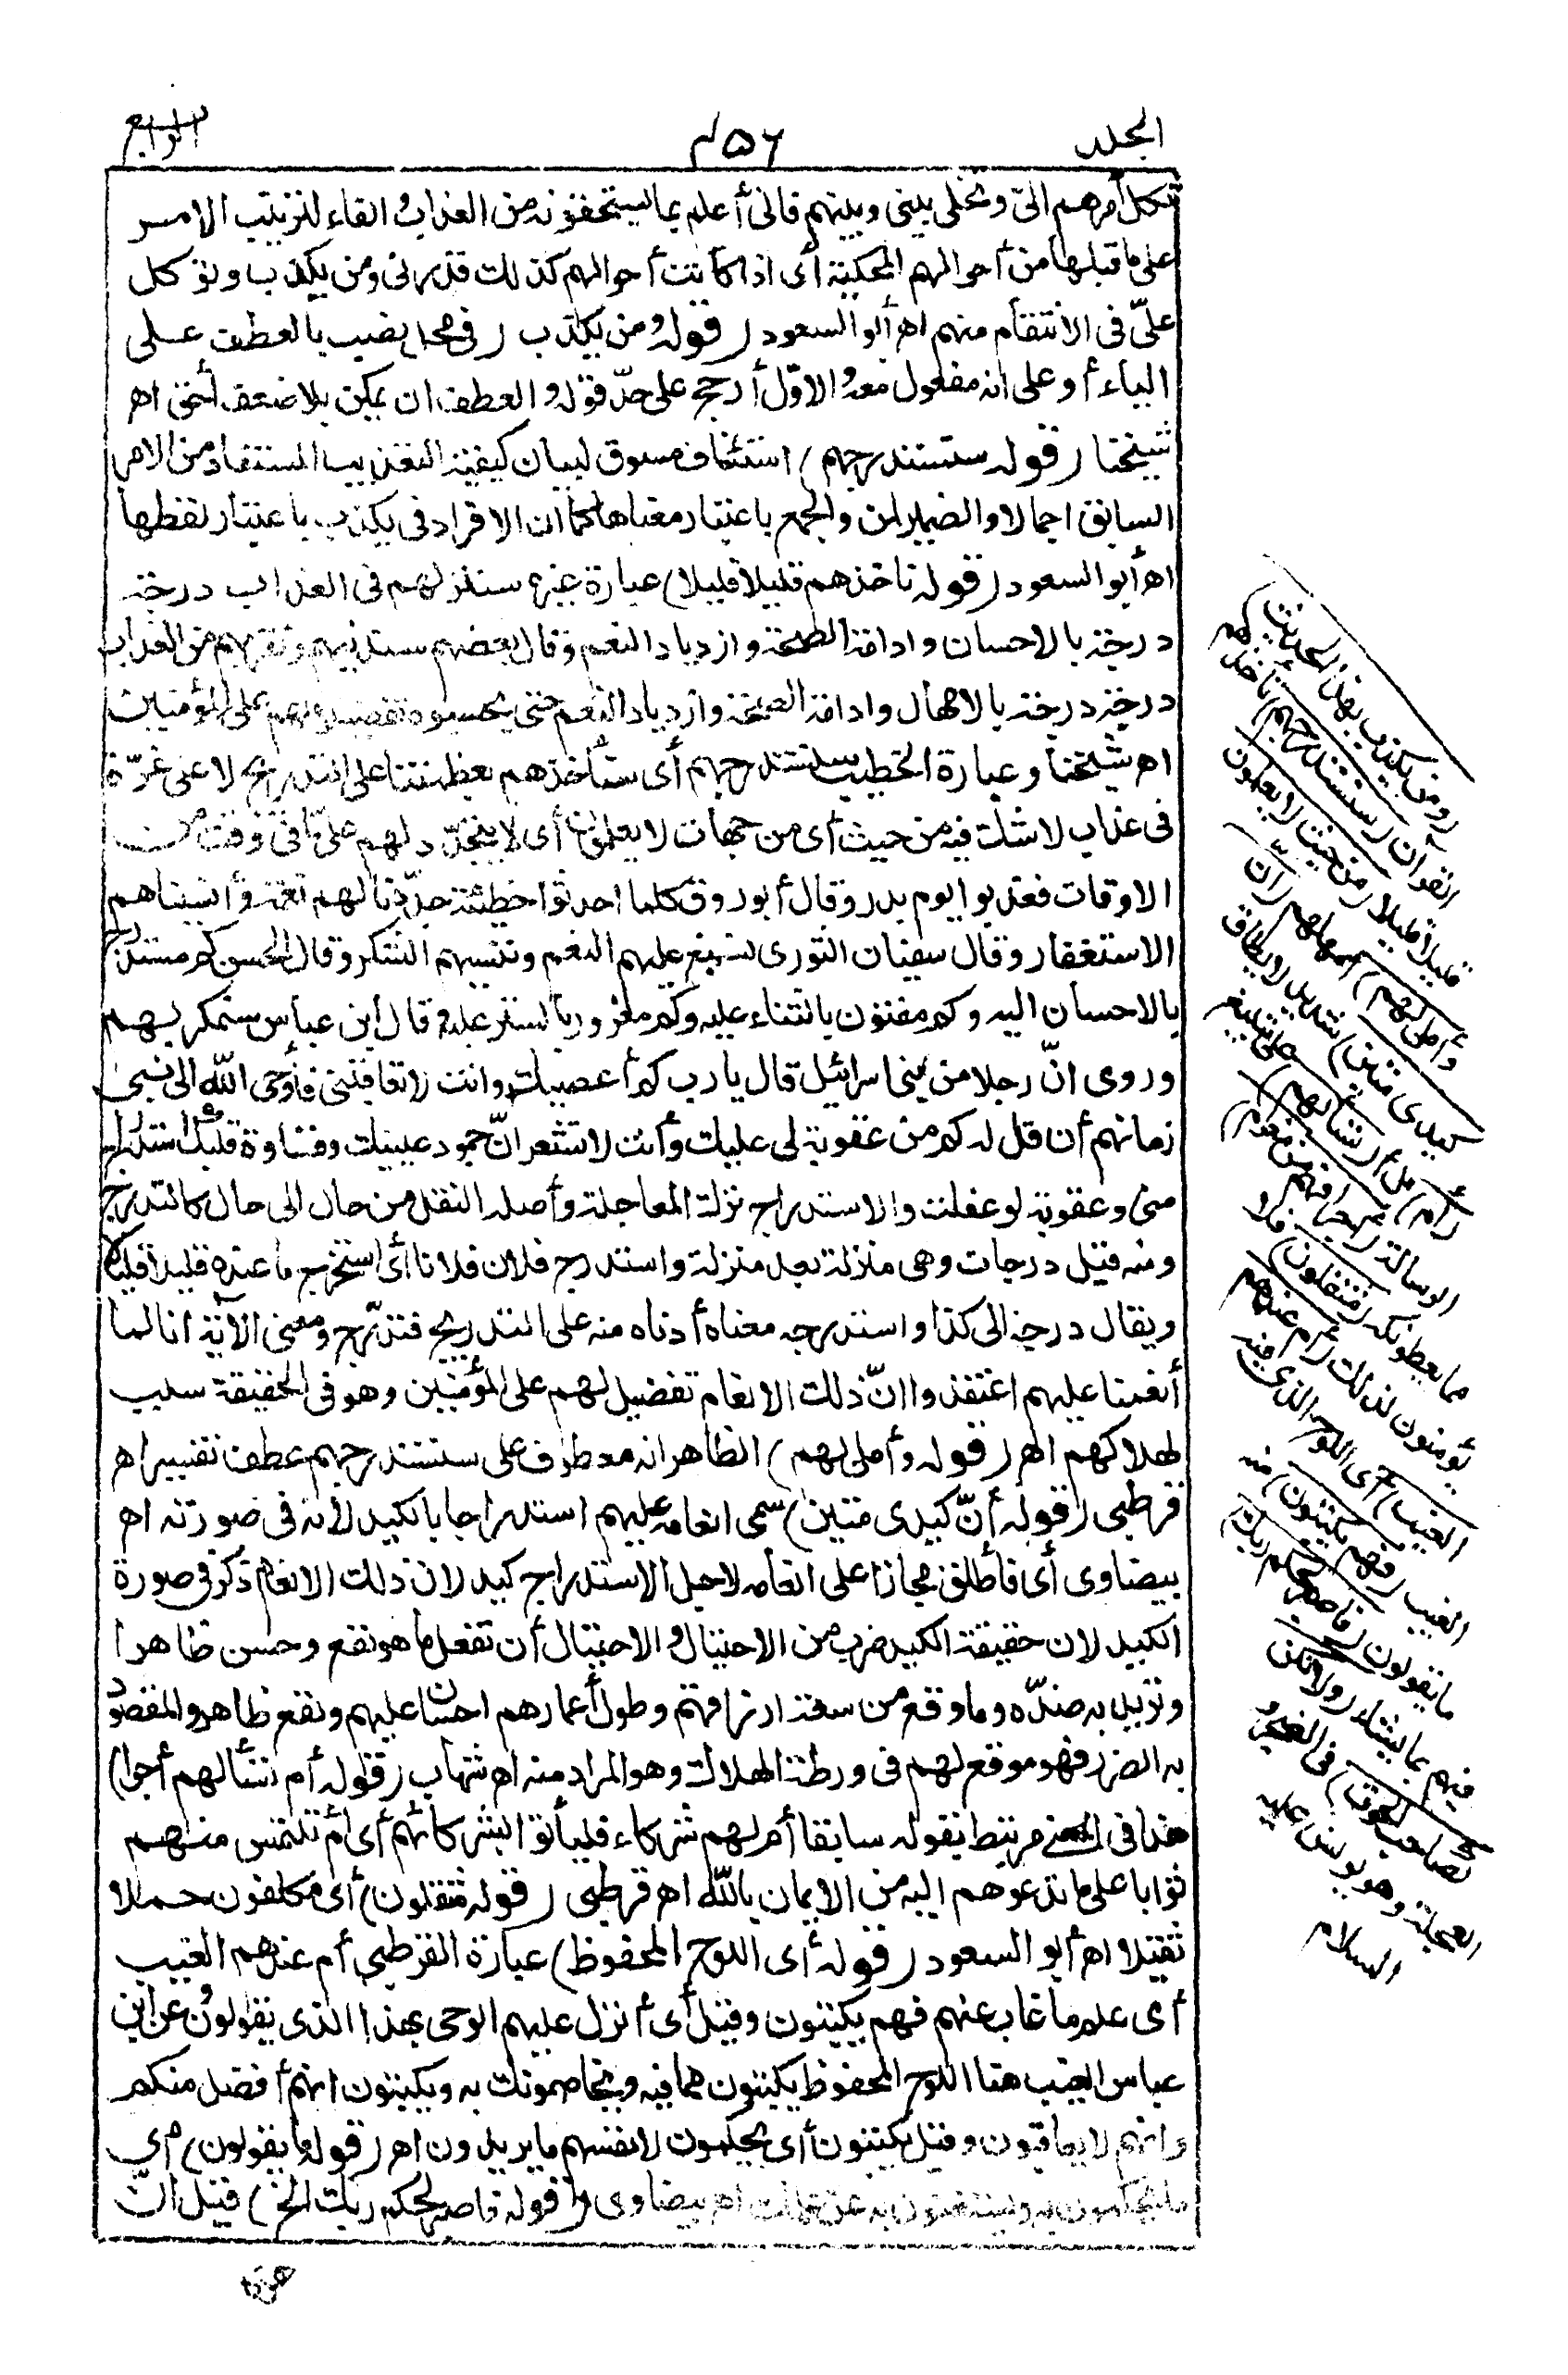 المجلد
٤٥٦
الرابع
تكل أمرهم الىّ وتخلى بينى وبينهم فانى أعلم بما يستحقونه من العذاب والفاء لترتيب الامر
على ما قبلها من أحوالهم المحكية أى اذا كانت أحوالهم كذلك فذرنى ومن يكذب وتوكل
علىّ فى الانتقام منهم اه أبو السعود (قوله ومن يكذب) فى محل نصب بالعطف على
الياء أو على انه مفعول معه والاوّل أرجح على حدّ قوله والعطف ان يمكن بلا ضعف أحق اه
شيخنا (قوله سنستدرجهم) استئناف مسوق لبيان كيفية التعذيب المستفاد من الامر
السابق اجمالا والضمير لمن والجمع باعتبار معناها كما أن الافراد فى يكذب باعتبار لفظها
اه أبو السعود (قوله نأخذهم قليلا قليلا) عبارة غيره سننزلهم فى العذاب درجة
درجة بالاحسان وادامة الصحة وازدياد النعم وقال بعضهم سندنيهم ونقربهم من العذاب
درجة درجة بالامهال وادامة الصحة وازدياد النعم حتى يحسبوه تفضيلا لهم على المؤمنين
اه شيخنا وعبارة الخطيب سنستدرجهم أى سنأخذهم بعظمتنا على التدريج لا على غرّة
فى عذاب لا شك فيه من حيث أى من جهات لا يعلمون أى لا يتجدّد لهم علم ما فى وقت من
الاوقات فعذبوا يوم بدر وقال أبو روق كلما احدثوا خطيئة جدّدنا لهم نعمة وأنسيناهم
الاستغفار وقال سفيان الثورى نسبغ عليهم النعم وننسيهم الشكر وقال الحسن كم مستدرج
بالاحسان اليه وكم مفتون بالثناء عليه وكم مغرور بالستر عليه وقال ابن عباس سنمكر بهم
وروى انّ رجلا من بنى اسرائيل قال يا رب كم أعصيك وانت لا تعاقبنى فأوحى الله الى نبى
زمانهم أن قل له كم من عقوبة لى عليك وأنت لا تشعر انّ جمود عينيك وقساوة قلبك استدراج
منى وعقوبة لو عقلت والاستدراج ترك المعاجلة وأصله النقل من حال الى حال كالتدرج
ومنه قيل درجات وهى منزلة بعد منزلة واستدرج فلان فلانا أى استخرج ما عنده قليلا قليلا
ويقال درجه الى كذا واستدرجه معناه أدناه منه على التدريج فتدرّج ومعنى الآية انا لما
أنعمنا عليهم اعتقدوا انّ ذلك الانعام تفضيل لهم على المؤمنين وهو فى الحقيقة سبب
لهلاكهم اه (قوله وأملى لهم) الظاهر انه معطوف على سنستدرجهم عطف تفسير اه
قرطبى (قوله أنّ كيدى متين) سمى انعامه عليهم استدراجا بالكيد لأنه فى صورته اه
بيضاوى أى فأطلق مجازا على انعامه لاجل الاستدراج كيد لان ذلك الانعام ذكر فى صورة
الكيد لان حقيقة الكيد ضرب من الاحتيال والاحتيال أن تفعل ما هو نفع وحسن ظاهرا
وتريد به ضدّه وما وقع من سعة ارزاقهم وطول أعمارهم احسان عليهم ونفع ظاهر والمقصود
به الضرر فهو موقع لهم فى ورطة الهلاك وهو المراد منه اه شهاب (قوله أم تسألهم أجرا)
هذا فى المعنى مرتبط بقوله سابقا أم لهم شركاء فليأتوا بشركائهم أى أم تلتمس منهم
ثوابا على ما تدعوهم اليه من الايمان بالله اه قرطبى (قوله مثقلون) أى مكلفون حملا
ثقيلا اه أبو السعود (قوله أى اللوح المحفوظ) عبارة القرطبى أم عندهم الغيب
أى علم ما غاب عنهم فهم يكتبون وقيل أى أنزل عليهم الوحى بهذا الذى يقولون وعن ابن
عباس الغيب هنا اللوح المحفوظ يكتبون مما فيه ويخاصمونك به ويكتبون انهم أفضل منكم
وانهم لا يعاقبون وقيل يكتبون أى يحكمون لانفسهم ما يريدون اه (قوله ما يقولون) أى
ما يحكمون به ويستغنون به عن علمك اه بيضاوى (قوله فاصبر لحكم ربك الخ) قيل انّ
(ومن يكذب بهذا الحديث)
القرآن (سنستدرجهم) نأخذهم
قليلا قليلا (من حيث لا يعلمون
وأملى لهم) أمهلهم (انّ
كيدى متين) شديد لا يطاق
(أم) بل أ (تسألهم) على تبليغ
الرسالة (أجرا فهم من مغرم)
مما يعطونكه (مثقلون) فلا
يؤمنون لذلك (أم عندهم
الغيب) أى اللوح الذى فيه
الغيب (فهم يكتبون) منه
ما يقولون (فاصبر لحكم ربك)
فيهم بما يشاء (ولا تكن
كصاحب الحوت) فى الضجر و
العجلة وهو يونس عليه
السلام